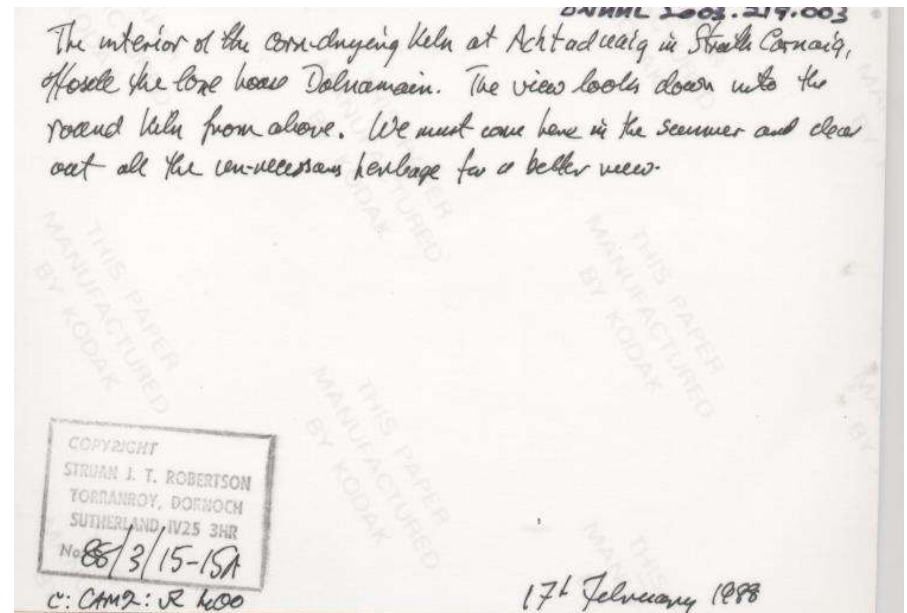 DNHHL 2003.219.003
The interior of the corn-drying kiln at Achtaduaig in Strath Carnaig,
opposite the lone house Dalnamain. The view looks down into the
round kiln from above. We must come here in the summer and clear
out all the un-necessary herbage for a better view.
THIS PAPER
MANUFACTURED
BY KODAK
THIS PAPER
MANUFACTURED
BY KODAK
THIS PAPER
MANUFACTURED
BY KODAK
COPYRIGHT
STRUAN J. T. ROBERTSON
TORRANROY, DORNOCH
SUTHERLAND, IV25 3HR
No. 88/3/15-15A
C: CAM2: R 400
17th February 1988